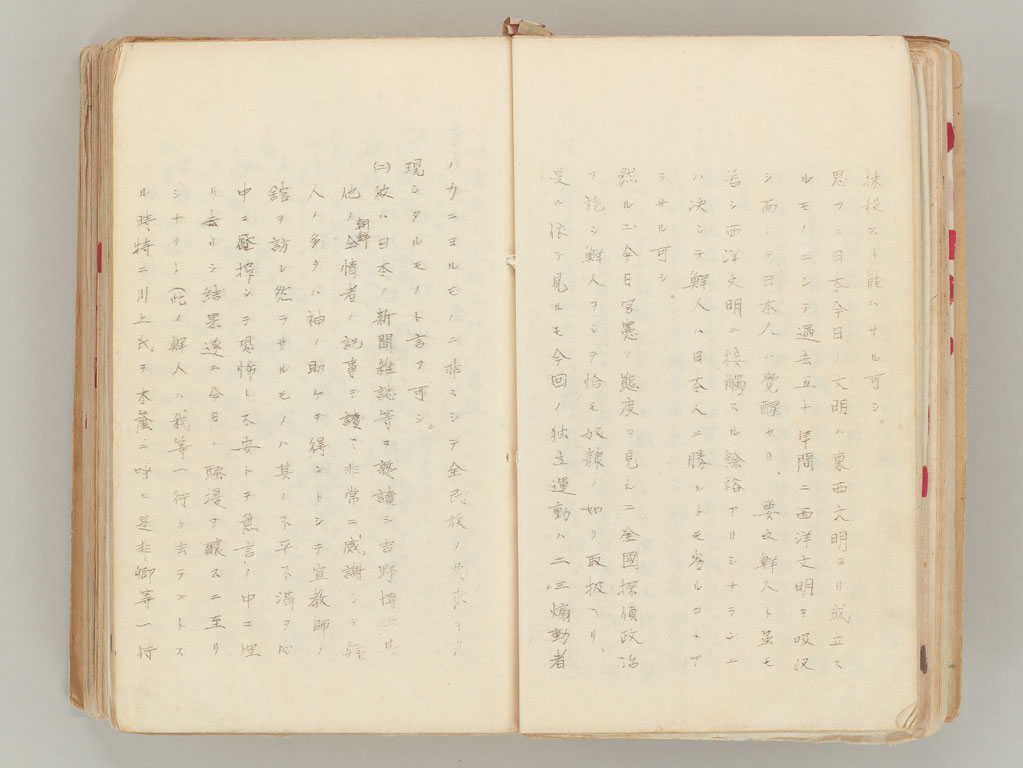 抹殺スル能ハサル可シ。
思フニ日本今日ノ文明ハ東西文明ヨリ成立ス
ルモノニシテ過去五十年間ニ西洋文明ヲ吸収
シ而シテ日本人ハ覚醒セリ、要之鮮人ト雖モ
若シ西洋文明ニ接觸スル餘裕アリシナランニ
ハ決シテ鮮人ハ日本人ニ勝ルトモ劣ルコトア
ラサル可シ。
然ルニ今日官憲ノ態度ヲ見ルニ全國探偵政治
ヲ施シ鮮人ヲシテ恰モ奴隷ノ如ク取扱ヘリ、
是ニ依テ見ルモ今回ノ独立運動ハ二、三煽動者
ノ力ニヨルモノニ非スシテ全民族ノ要求ヲ表
現シタルモノト言フ可シ。
(二)彼ハ日本ノ新聞雑誌等ヲ熟讀シ吉野博士其
他ノ朝鮮同情者ノ記事ヲ讀ミ非常ニ感謝シテ鮮
人ノ多クハ神ノ助ケヲ得ントシテ宣教師ノ
舘ヲ訪レ然ラサルモノハ其ノ不平不満ヲ心
中ニ壓搾シテ恐怖ト不安トヲ無言ノ中ニ埋
リ去リシ結果遂ニ今日ノ騒擾ヲ醸スニ至リ
シナリト(此ノ鮮人ハ我等一行カ去ラントス
ル時特ニ川上氏ヲ木蔭ニ呼ヒ是非卿等一行